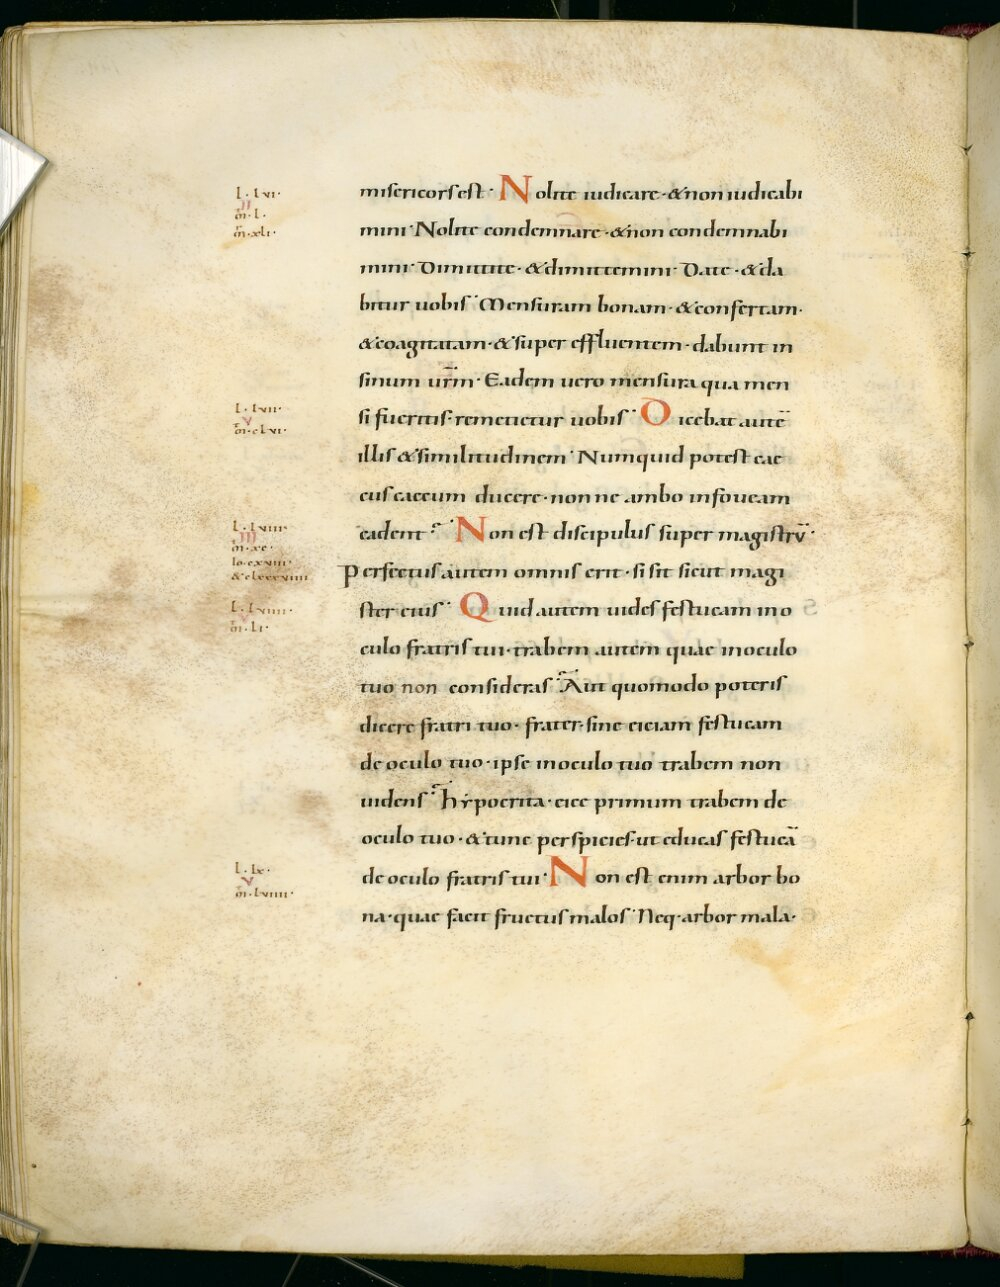 l · lvi ·
II
m̄ · l ·
m̄ · xli ·
misericors est · Nolite iudicare · & non iudicabi
mini · Nolite condemnare · & non condemnabi
mini · Dimittite · & dimittemini · Date · & da
bitur uobis · Mensuram bonam · & confertam ·
& coagitatam · & super effluentem · dabunt in
sinum ur̄m · Eadem uero mensura qua men
l · lvii ·
V
m̄ · clvi ·
si fueritis · remetietur uobis · Dicebat autē
illis & similitudinem · Numquid potest cae
cus caecum ducere · non ne ambo in foueam
l · lviii ·
III
m̄ · xc ·
Io · cxviii ·
& clxxxviiii
cadent ? Non est discipulus super magistrū ·
perfectus autem omnis erit · si sit sicut magi
l · lviiii ·
V
m̄ · li ·
ster eius · Quid autem uides festucam in o
culo fratris tui · trabem autem quae in oculo
tuo non consideras · Aut quomodo poteris
dicere fratri tuo · frater · sine eiciam festucam
de oculo tuo · ipse in oculo tuo trabem non
uidens · hypocrita · eice primum trabem de
oculo tuo · & tunc perspicies · ut educas festucā
l · lx ·
V
m̄ · lviiii ·
de oculo fratris tui · Non est enim arbor bo
na · quae facit fructus malos · Neq · arbor mala ·